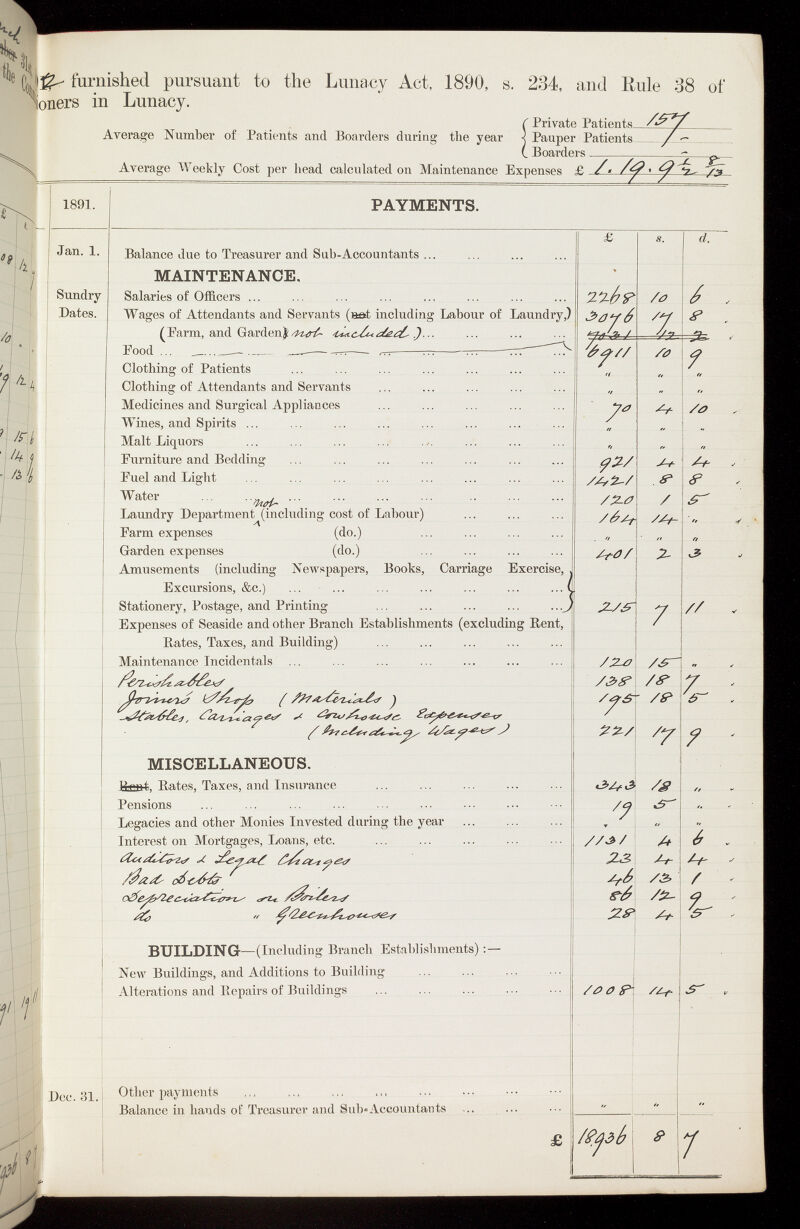 furnished pursuant to the Lunacy Act, 1890, s. 234, and Rule 38 of
oners in Lunacy.
Average Number of Patients and Boarders during the year
Private Patients 157
Pauper Patients -
Boarders -
Average Weekly Cost per head calculated on Maintenance Expenses £ 1. 19. 9 1/2 8/13
1891. PAYMENTS.
£ s. d.
Jan. 1. Balance due to Treasurer and Sub-Accountants ...
MAINTENANCE.
Sundry Dates.
Salaries of Officers ... 2268 10 6
Wages of Attendants and Servants (not including Labour of Laundry,) 3046 14 8
(Farm, and Garden) not included.)... 7031 12 2
Food ... 6911 10 9
Clothing of Patients ... " " "
Clothing of Attendants and Servants ... " " "
Medicines and Surgical Appliances ... 70 4 10
Wines, and Spirits ... " " "
Malt Liquors ... " " "
Furniture and Bedding ... 921 4 4
Fuel and Light ... 1421 8 8
Water ... 120 1 5
Laundry Department not (including cost of Labour) ... 164 14 "
Farm expenses (do.) ... " " "
Garden expenses (do.) ... 401 2 3
Amusements (including Newspapers, Books, Carriage Exercise,
Excursions, &c.) ...
Stationery, Postage, and Printing ... 215 7 11
Expenses of Seaside and other Branch Establishments (excluding Rent,
Rates, Taxes, and Building) ...
Maintenance Incidentals ... 120 15 "
Perishables 138 18 7
Joiner's Shop (Materials) 195 18 5
Stables, Carriages & Cowhouse Expenses
(Including Wages) 221 17 9
MISCELLANEOUS.
Rent, Rates, Taxes, and Insurance ... 343 18 "
Pensions ... 19 5 "
Legacies and other Monies Invested during the year ... " " "
Interest on Mortgages, Loans, etc. ... 1131 4 6
Auditors & Legal Charges 23 4 4
Bad Debts 46 13 1
Depreciation on Boilers 86 12 9
do " Greenhouses 28 4 5
BUILDING—(Including Branch Establishments) :—
New Buildings, and Additions to Building ...
Alterations and Repairs of Buildings ... 1008 14 5
Dec. 31. Other payments ...
Balance in hands of Treasurer and Sub-Accountants ... " " "
£ 18,936 8 7